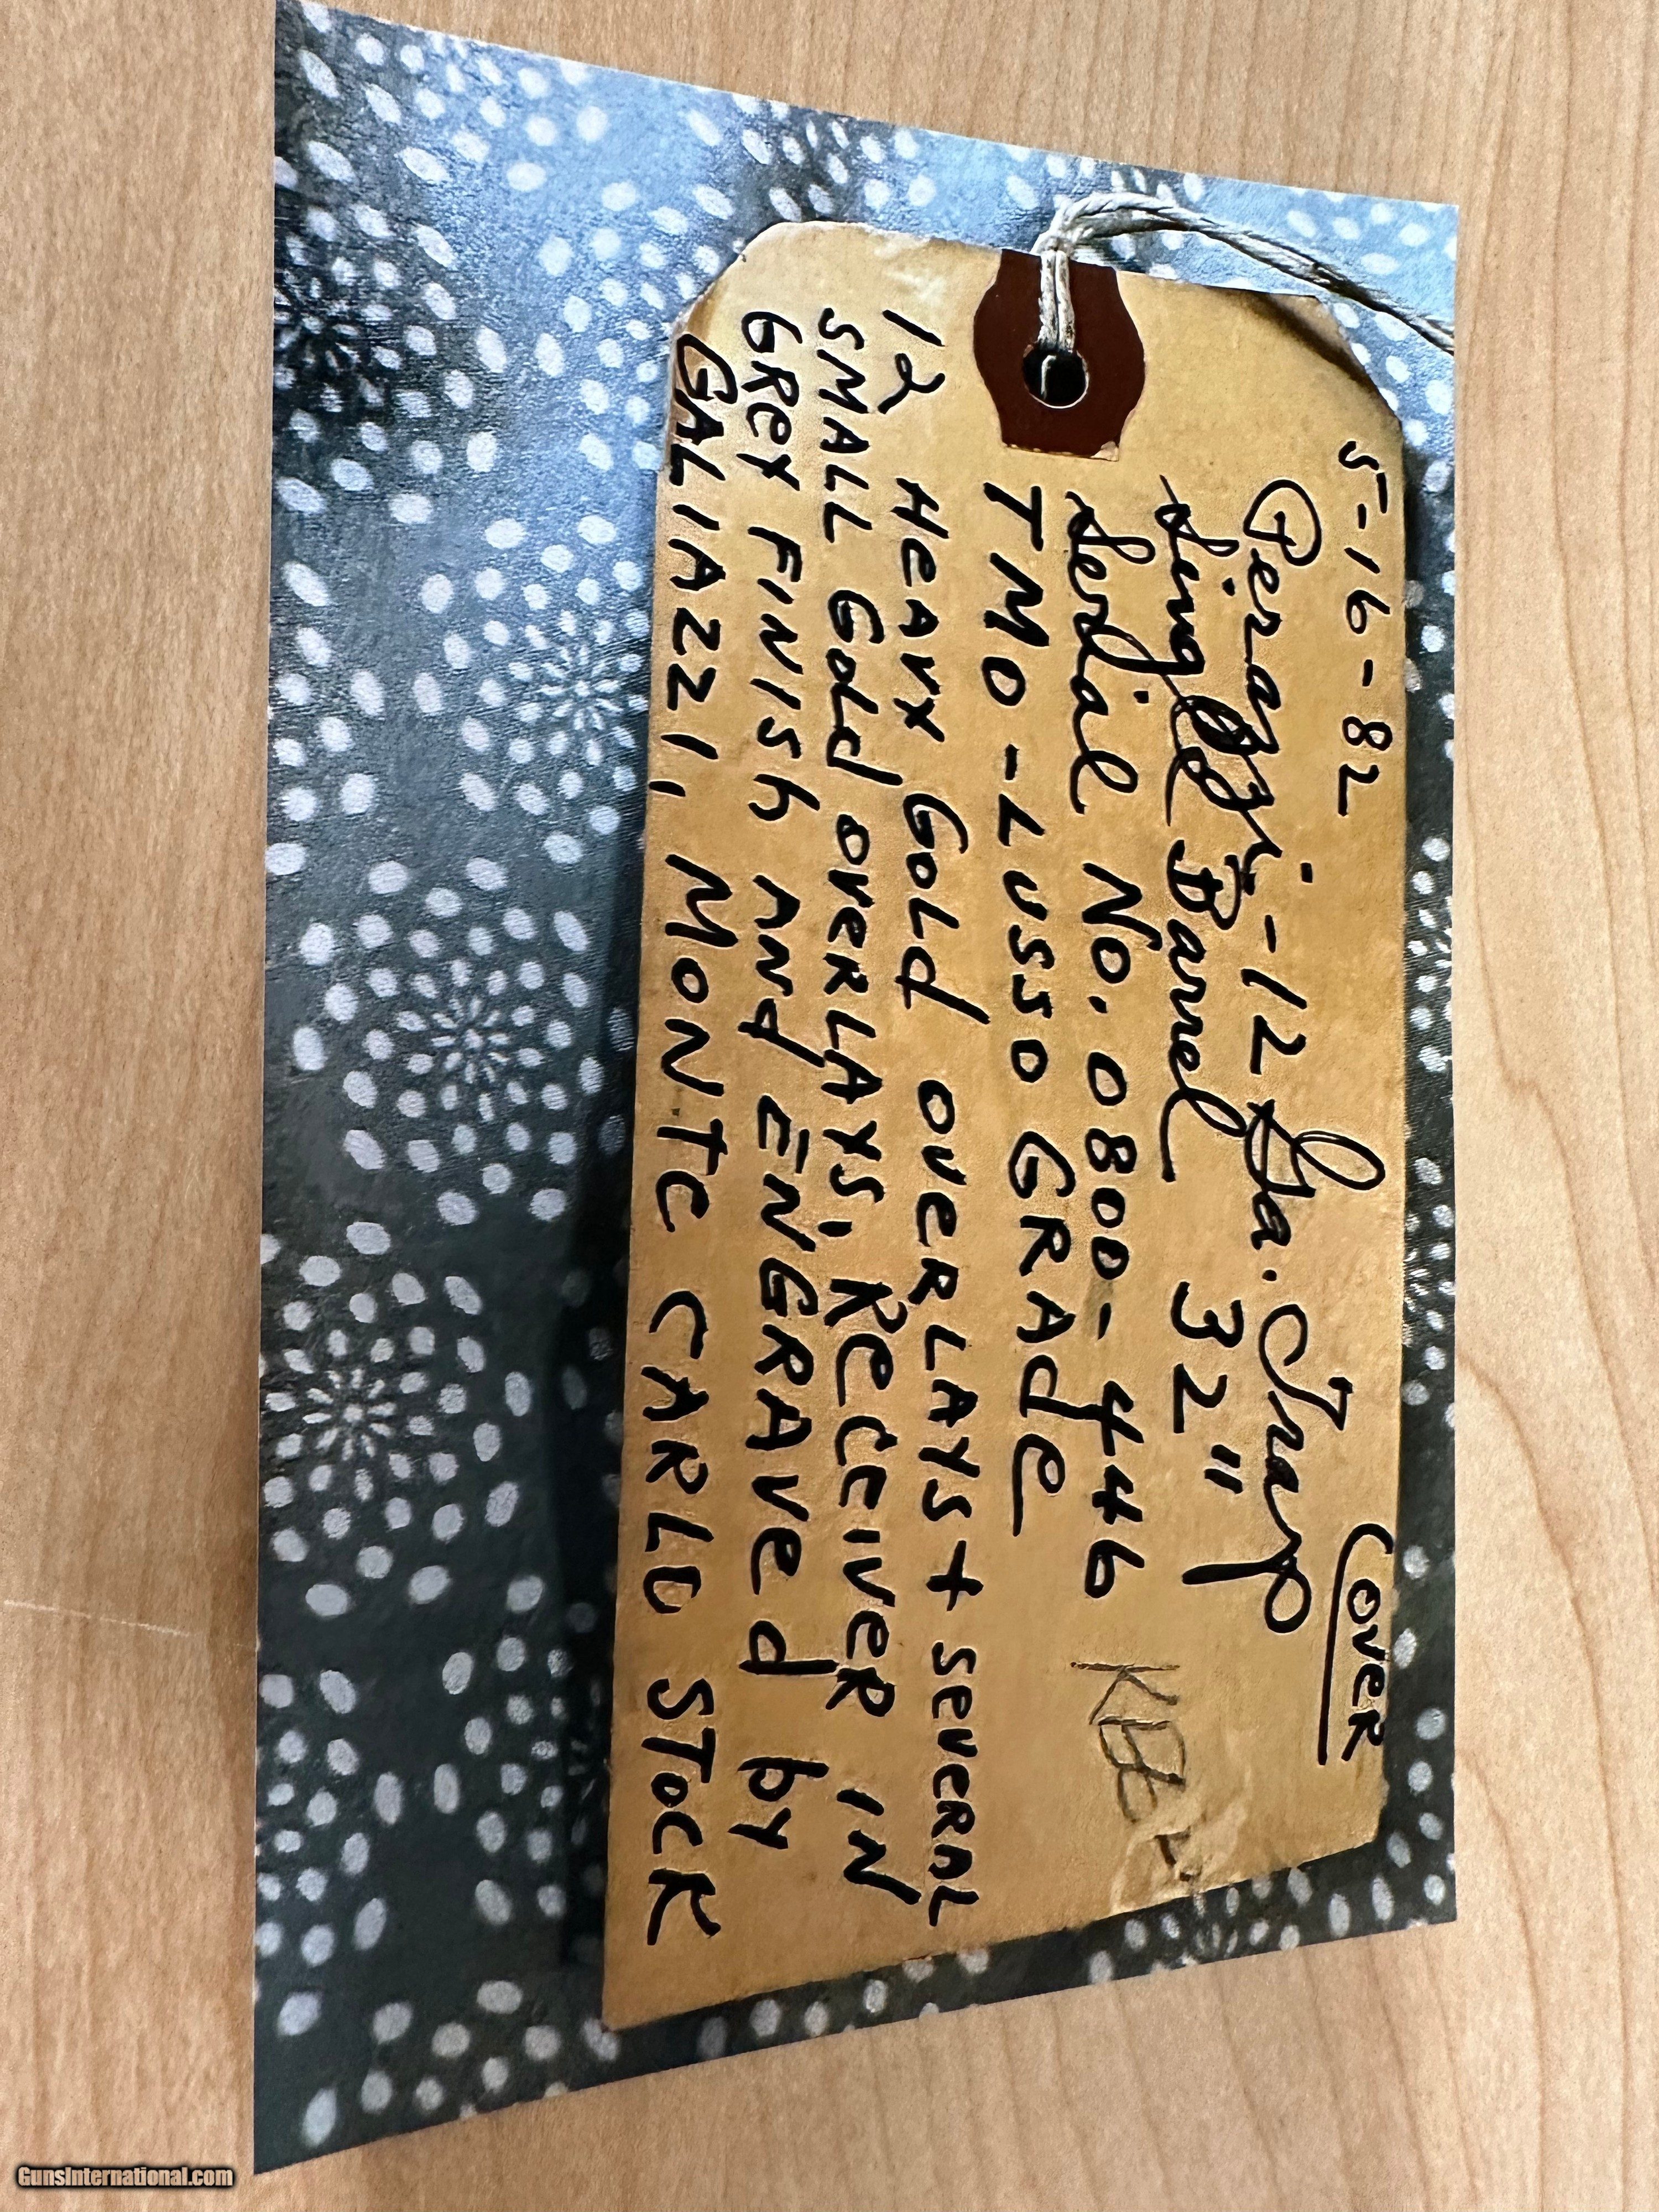 5-16-82 Over
Perazzi-12 Ga. Trap
Single Barrel 32"
Serial No. 0800-446
TMO-LUSSO GRAde
12 HeAVY GOLd OVeRLAYS + SeVeRAL
SMALL GOLd OVeRLAYS, ReCeIVeR IN
GReY FINISh ANd ENGRAVed by
GALIAZZI, MONTe CARLO STOCK
GunsInternational.com